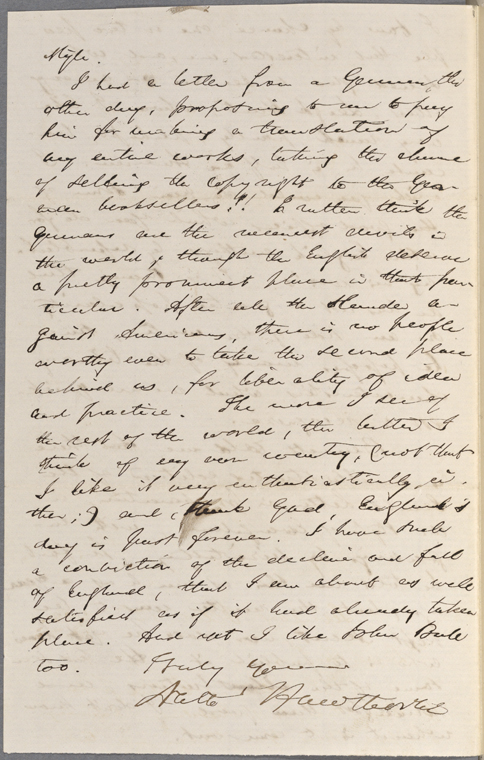 style.
I had a letter from a German the
other day, proposing to me to pay
him for making a translation of
my entire works, taking the chance
of selling the copyright to the Ger-
man booksellers!! I rather think the
Germans are the meanest devils in
the world; though the English deserve
a pretty prominent place in that par-
ticular. After all the slander a-
gainst Americans, there is no people
worthy even to take the second place
behind us, for liberality of idea
and practice. The more I see of
the rest of the world, the better I
think of my own country, (not that
I like it very enthusiastically, ei-
ther;) and, thank God, England's
day is past forever. I have such
a conviction of the decline and fall
of England, that I am about as well
satisfied as if it had already taken
place. And yet I like John Bull
too. Truly Yours
Nath Hawthorne